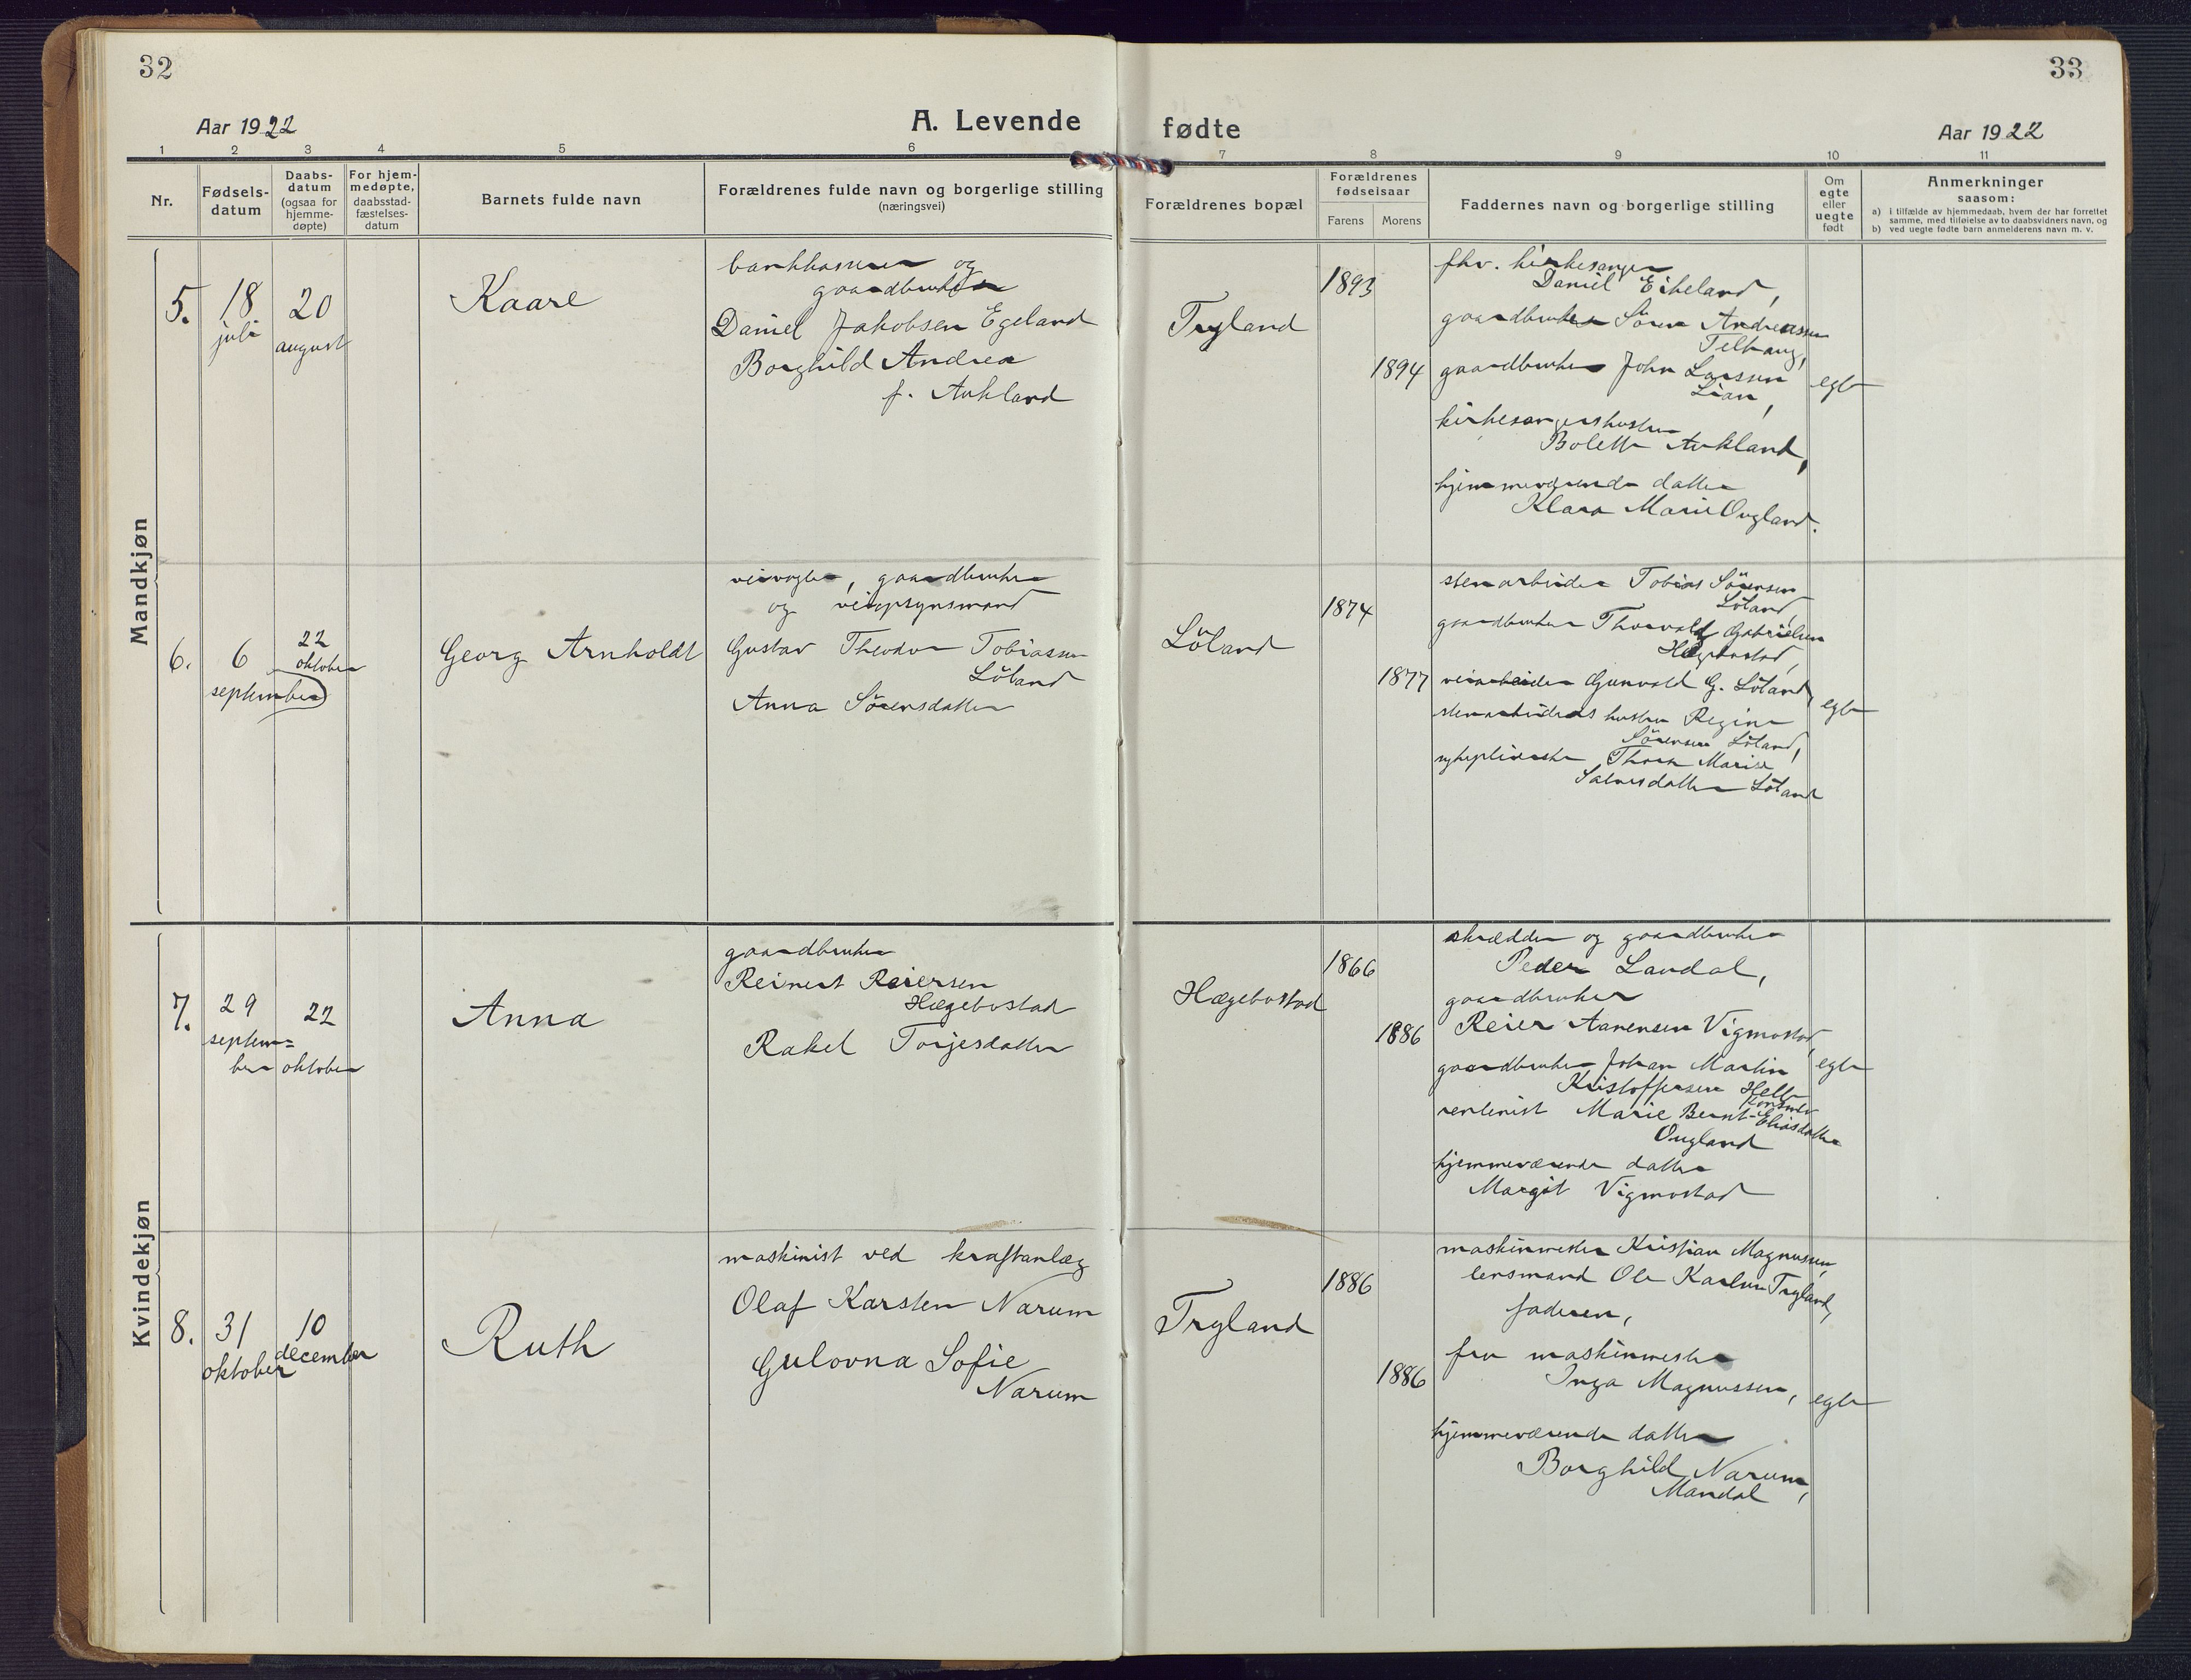 32
33
Aar 1922
A. Levende fødte
Aar 1922
1 2 3 4 5 6 7 8 9 10 11
Nr.
Fødsels-
datum
Daabs-
datum
(ogsaa for
hjemme-
døpte)
For hjem-
medøpte,
daabsstad-
fæstelses-
datum
Barnets fulde navn
Forældrenes fulde navn og borgerlige stilling
(næringsvei)
Forældrenes bopæl
Forældrenes
fødselsaar
Farens Morens
Faddernes navn og borgerlige stilling
Om
egte
eller
uegte
født
Anmerkninger
saasom:
a) i tilfælde av hjemmedaab, hvem der har forrettet
samme, med tilføielse av to daabsvidners navn, og
b) ved uegte fødte barn anmelderens navn m. v.
Mandkjøn
5.
18
juli
20
august
Kaare
bankkasserer og
gaardbruker
Daniel Jakobsen Egeland
Borghild Andrea
f. Aukland
Tryland
1893
1894
fhv. kirkesanger
Daniel Eikeland,
gaardbruker Sören Andreassen
gaardbruker John Larssen
Lian,
kirkesangershustru
Bolette Aukland,
hjemmeværende datter
Klara Marie Ougland.
egte
6.
6
september
22
oktober
Georg Arnholdt
veivogter, gaardbruker
og veiopsynsmand
Gustav Theodor Tobiassen
Löland
Anna Sörensdatter
Löland
1874
1877
stenarbeider Tobias Sörensen
Löland
gaardbruker Thorvald Gabrielsen
Hægebostad,
veiarbeider Gunvald G. Löland,
stenarbeiders hustru Regine
Sörensen Löland,
sykepleierske Thora Marie
Salvesdatter Löland
egte
Kvindekjøn
7.
29
septem=
ber
22
oktober
Anna
gaardbruker
Reinert Reiersen
Hægebostad
Rakel Torjesdatter
Hægebostad
1866
1886
skrædder og gaardbruker
Peder Landal,
gaardbruker
Reier Aanensen Vigmostad,
gaardbruker Johan Martin
Kristoffersen Helle
rentenist Marie Bernt-Eliasdatter
Ougland
hjemmeværende datter
Margit Vigmostad
egte
8.
31
oktober
10
december
Ruth
maskinist ved kraftanlæg
Olaf Karsten Narum
Gulovna Sofie
Narum
Tryland
1886
1886
maskinmester Kristian Magnussen,
lensmand Ole Karlsen Tryland,
faderen,
fru maskinmester
Inga Magnussen,
hjemmeværende datter
Borghild Narum,
Mandal
egte